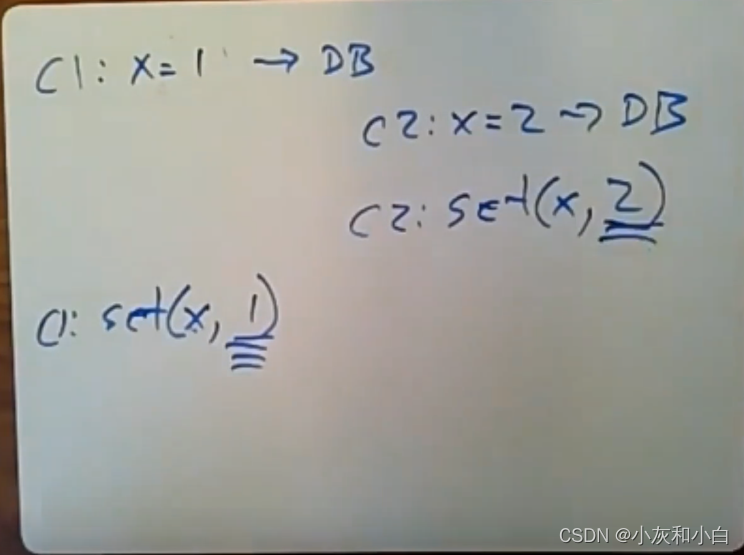 C1: x=1 → DB
C2: x=2 → DB
C2: set(x, 2)
C1: set(x, 1)
CSDN @小灰和小白